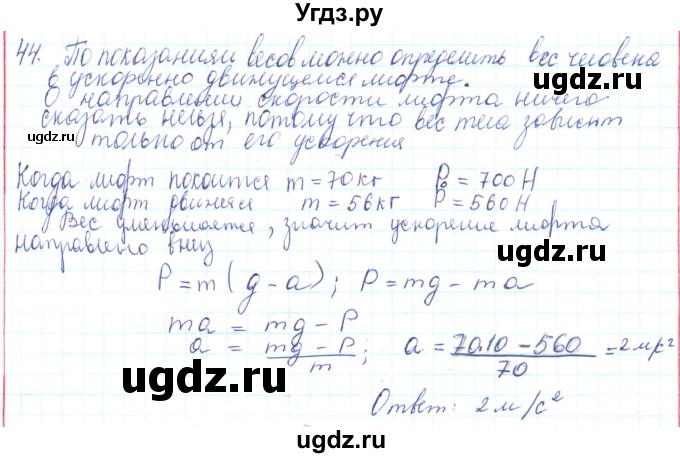 Угдз.ру
44. По показаниям весов можно определить вес человека
в ускоренно движущемся лифте.
О направлении скорости лифта ничего
сказать нельзя, потому что вес тела зависит
только от его ускорения
угдз.ru
угдз.ru
Когда лифт покоится m = 70 кг P₀ = 700 Н
Когда лифт движется m = 56 кг P = 560 Н
Вес уменьшается, значит ускорение лифта
направлено вниз
угдз.ru
P = m(g - a); P = mg - ma
ma = mg - P
a = (mg - P)/m; a = (70·10 - 560)/70 = 2 м/с²
угдз.ru
угдз.ru
Ответ: 2 м/с²
угдз.ru